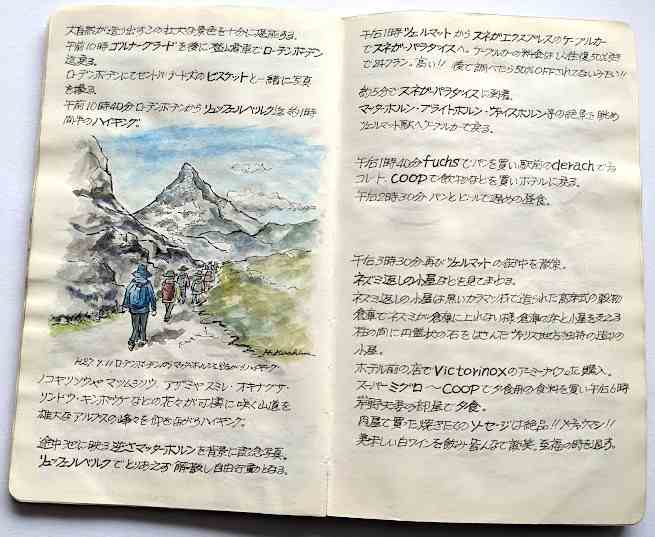 大自然が造り出すこの壮大な景色を十分に堪能する。
午前10時ゴルナーグラードを後に登山電車でローテンボーデン
迄戻る。
ローテンボーデンにてセントバーナード犬のビスケットと一緒に写真
を撮る。
午前10時40分ローテンボーデンからリュッフェルベルク迄約1時
間半のハイキング。
H.Kurohim
H27.7.11 ローテンボーデンからマッターホルンを見ながらハイキング
ノコギリソウやマツムシソウ、アザミやスミレ・オキナグサ・
リンドウ・キンポウゲなどの花々が可憐に咲く山道を
雄大なアルプスの峰々を仰ぎながらハイキング。
途中池に映る逆さマッターホルンを背景に記念写真。
リュッフェルベルクでとりあえず解散し自由行動となる。
午后1時ツェルマットからスネガエクスプレスのケーブルカー
でスネガ・パラダイスへ。ケーブルカーの料金は1人往復50%引き
で24フラン。高い!! 後で調べたら50%OFFされてないみたい!!
約5分でスネガ・パラダイスに到着。
マッターホルン・ブライトホルン・ヴァイスホルン等の絶景を眺め
ツェルマット駅へケーブルカーで戻る。
午后1時40分fuchsでパンを買い駅前のderachでチョ
コレート、COOPで飲物などを買いホテルに戻る。
午后2時30分パンとビールで遅めの昼食。
午后3時30分再びツェルマットの街中を散策。
ネズミ返しの小屋などを見てまわる。
ネズミ返しの小屋は黒いカラマツ材で造られた高床式の穀物
倉庫でネズミが倉庫に上れない様、倉庫の床と小屋を支える
柱の間に円盤状の石をはさんだヴァリス地方独特の造りの
小屋。
ホテル前の店でVictorinoxのアーミーナイフを購入。
スーパーミグロ〜COOPで夕食用の食料を買い午后6時
夫妻の部屋で夕食。
肉屋で買った焼きたてのソーセージは絶品!!メチャウマ!!
美味しい白ワインを飲み皆んなで談笑、至福の時を過す。